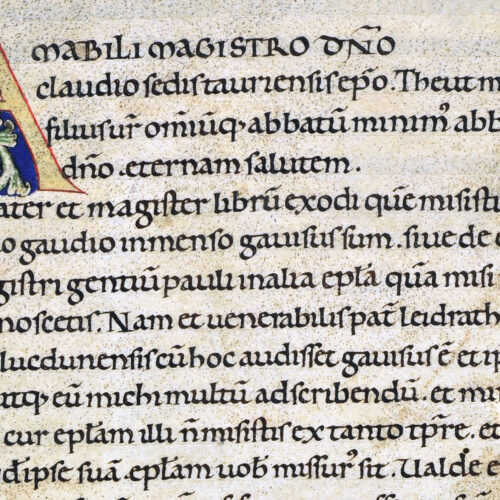 AMABILI MAGISTRO DÑO
claudio sedis tauriensis epõ. Theut m
filius ur̃ omiũq; abbatũ minim⁹ abb
dño. eternam salutem.
ater et magister librũ exodi quẽ misisti
o gaudio inmenso gavisus sum. siue de e
gistri gentiũ pauli in alia ep̃la quã misi
noscetis. Nam et uenerabilis pat̃ leidrath
luedunensis cũ hoc audisset gauisus ẽ et ip
utq; eũ michi multũ ad scribendũ. et mi
cur ep̃lam illi ñ misistis ex tanto tp̃re. et
d ipse suã. ep̃lam uob̃ missur⁹ sit. Ualde e